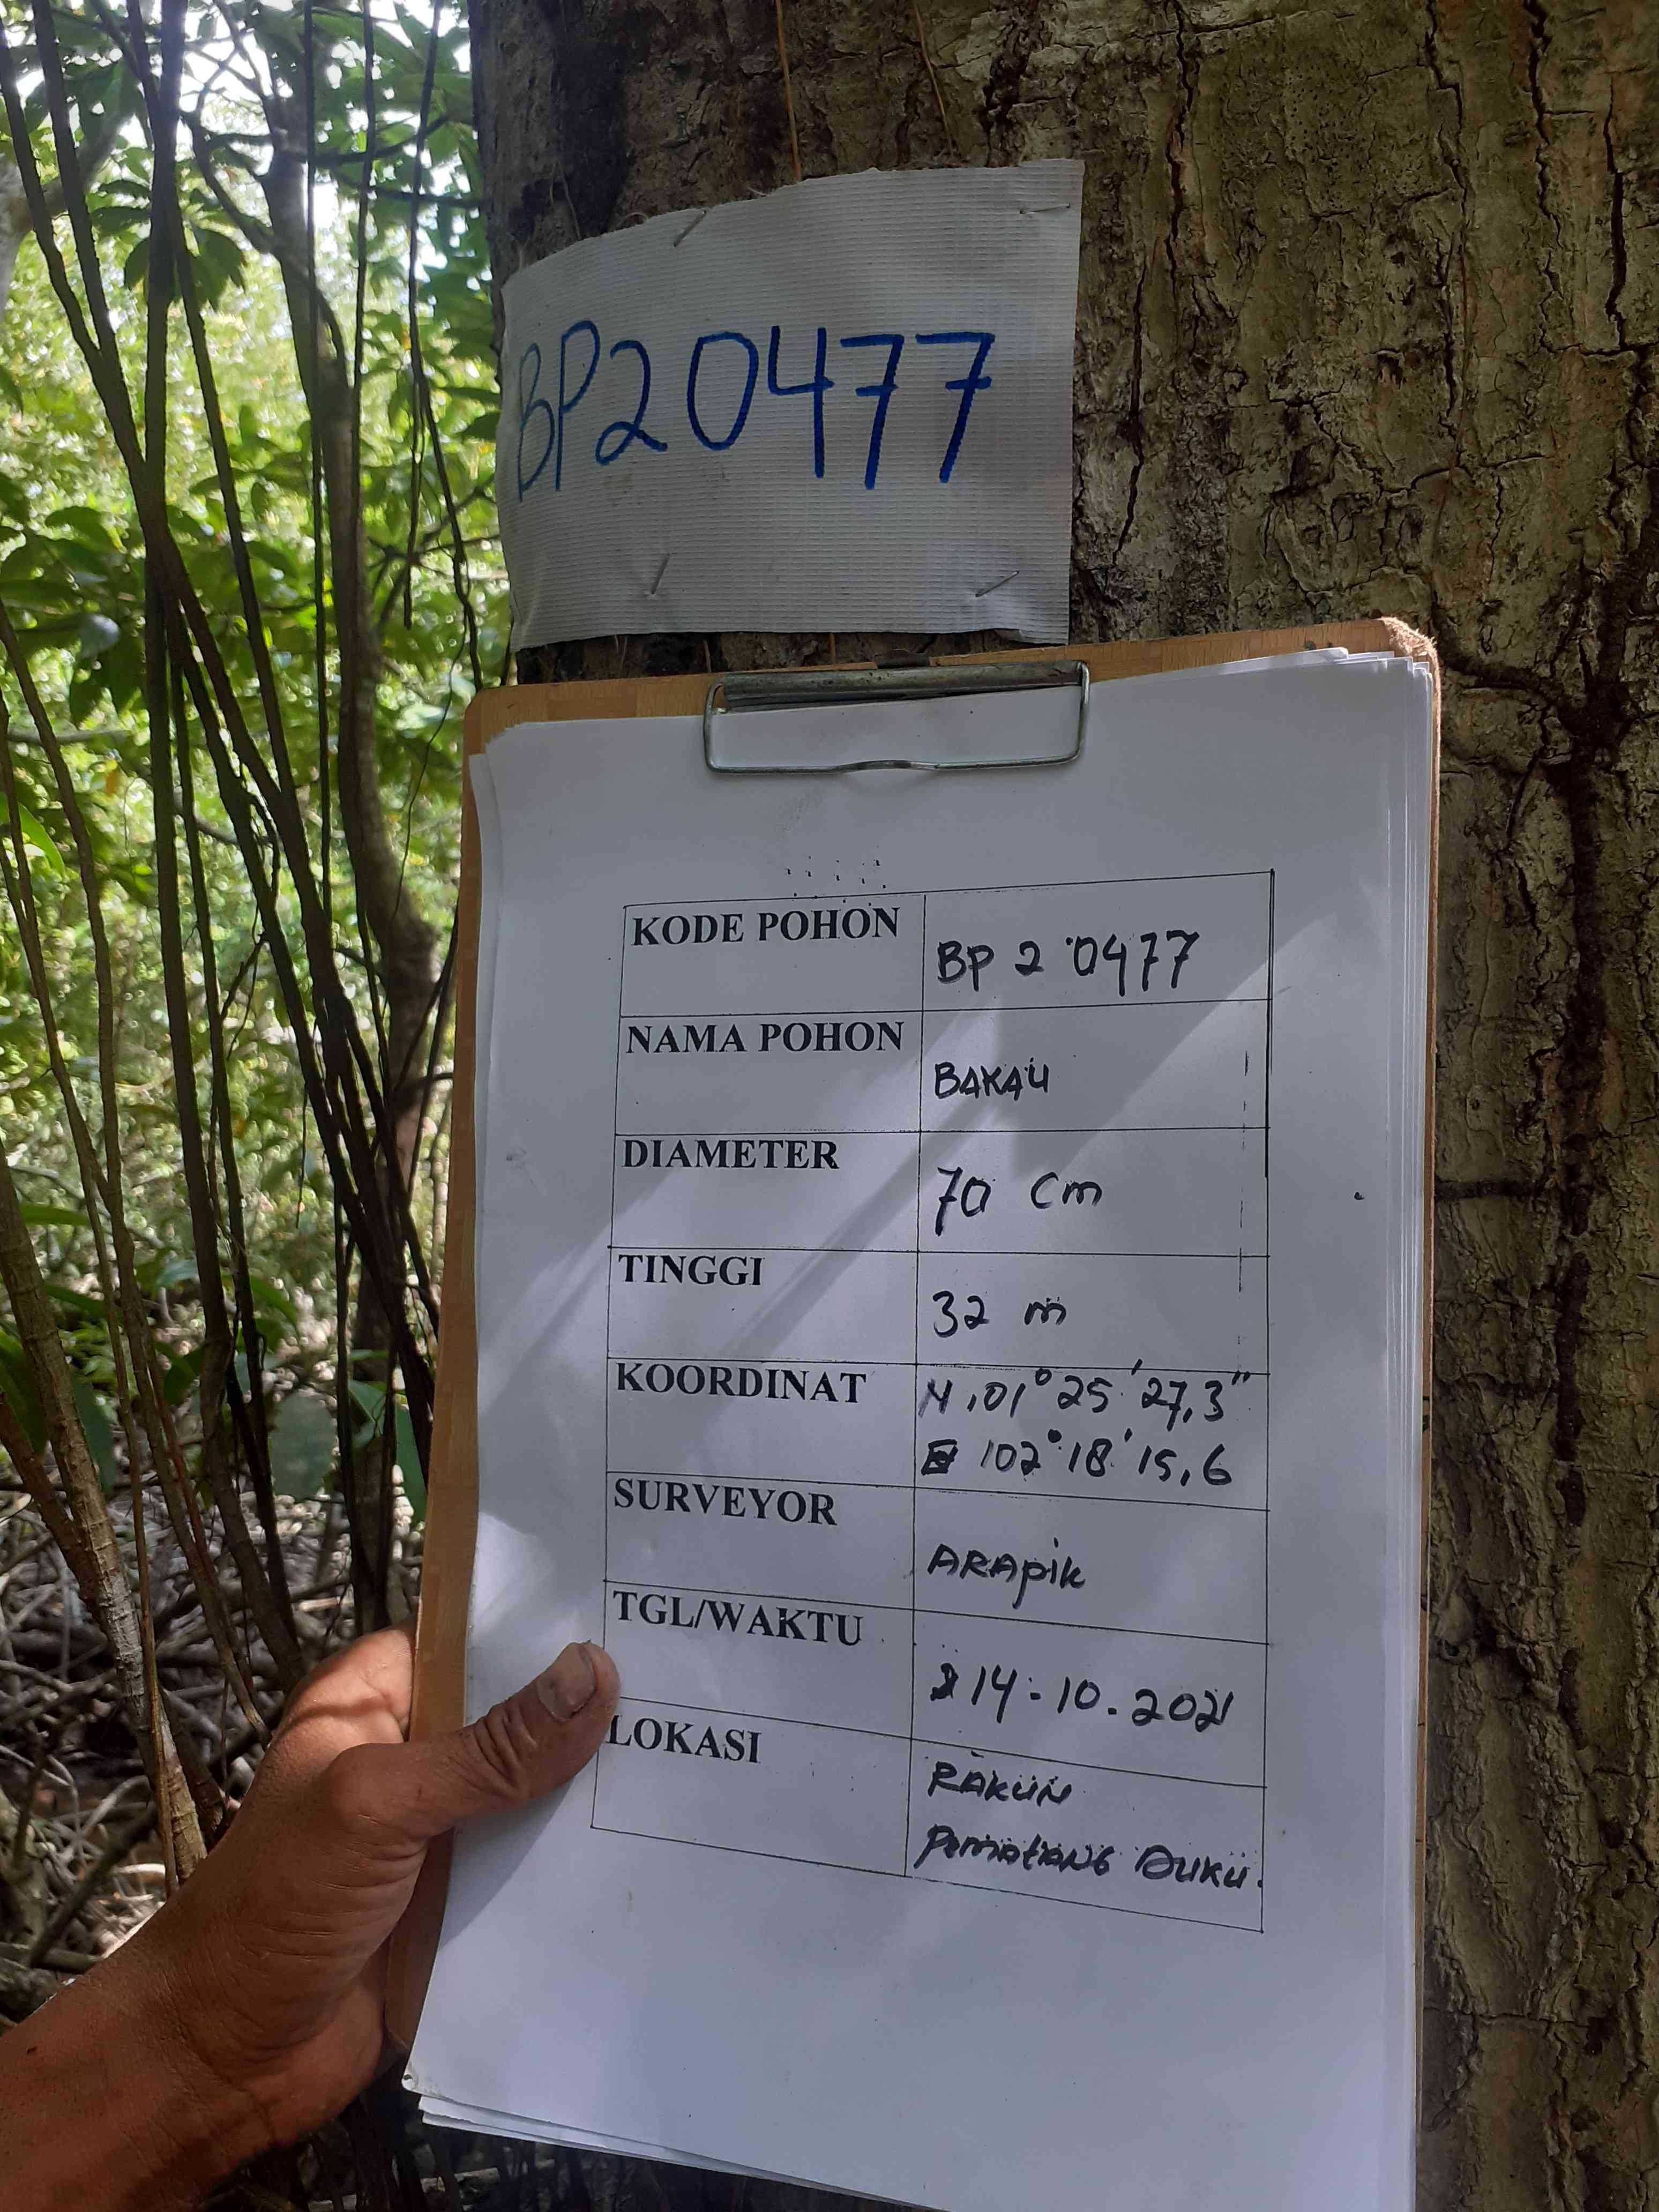 BP20477
KODE POHON BP 2 0477
NAMA POHON BAKAU
DIAMETER 70 cm
TINGGI 32 m
KOORDINAT N.01° 25' 27,3"
E 102° 18' 15,6
SURVEYOR ARApik
TGL/WAKTU 14-10.2021
LOKASI RAKUN
Pematang Duku.